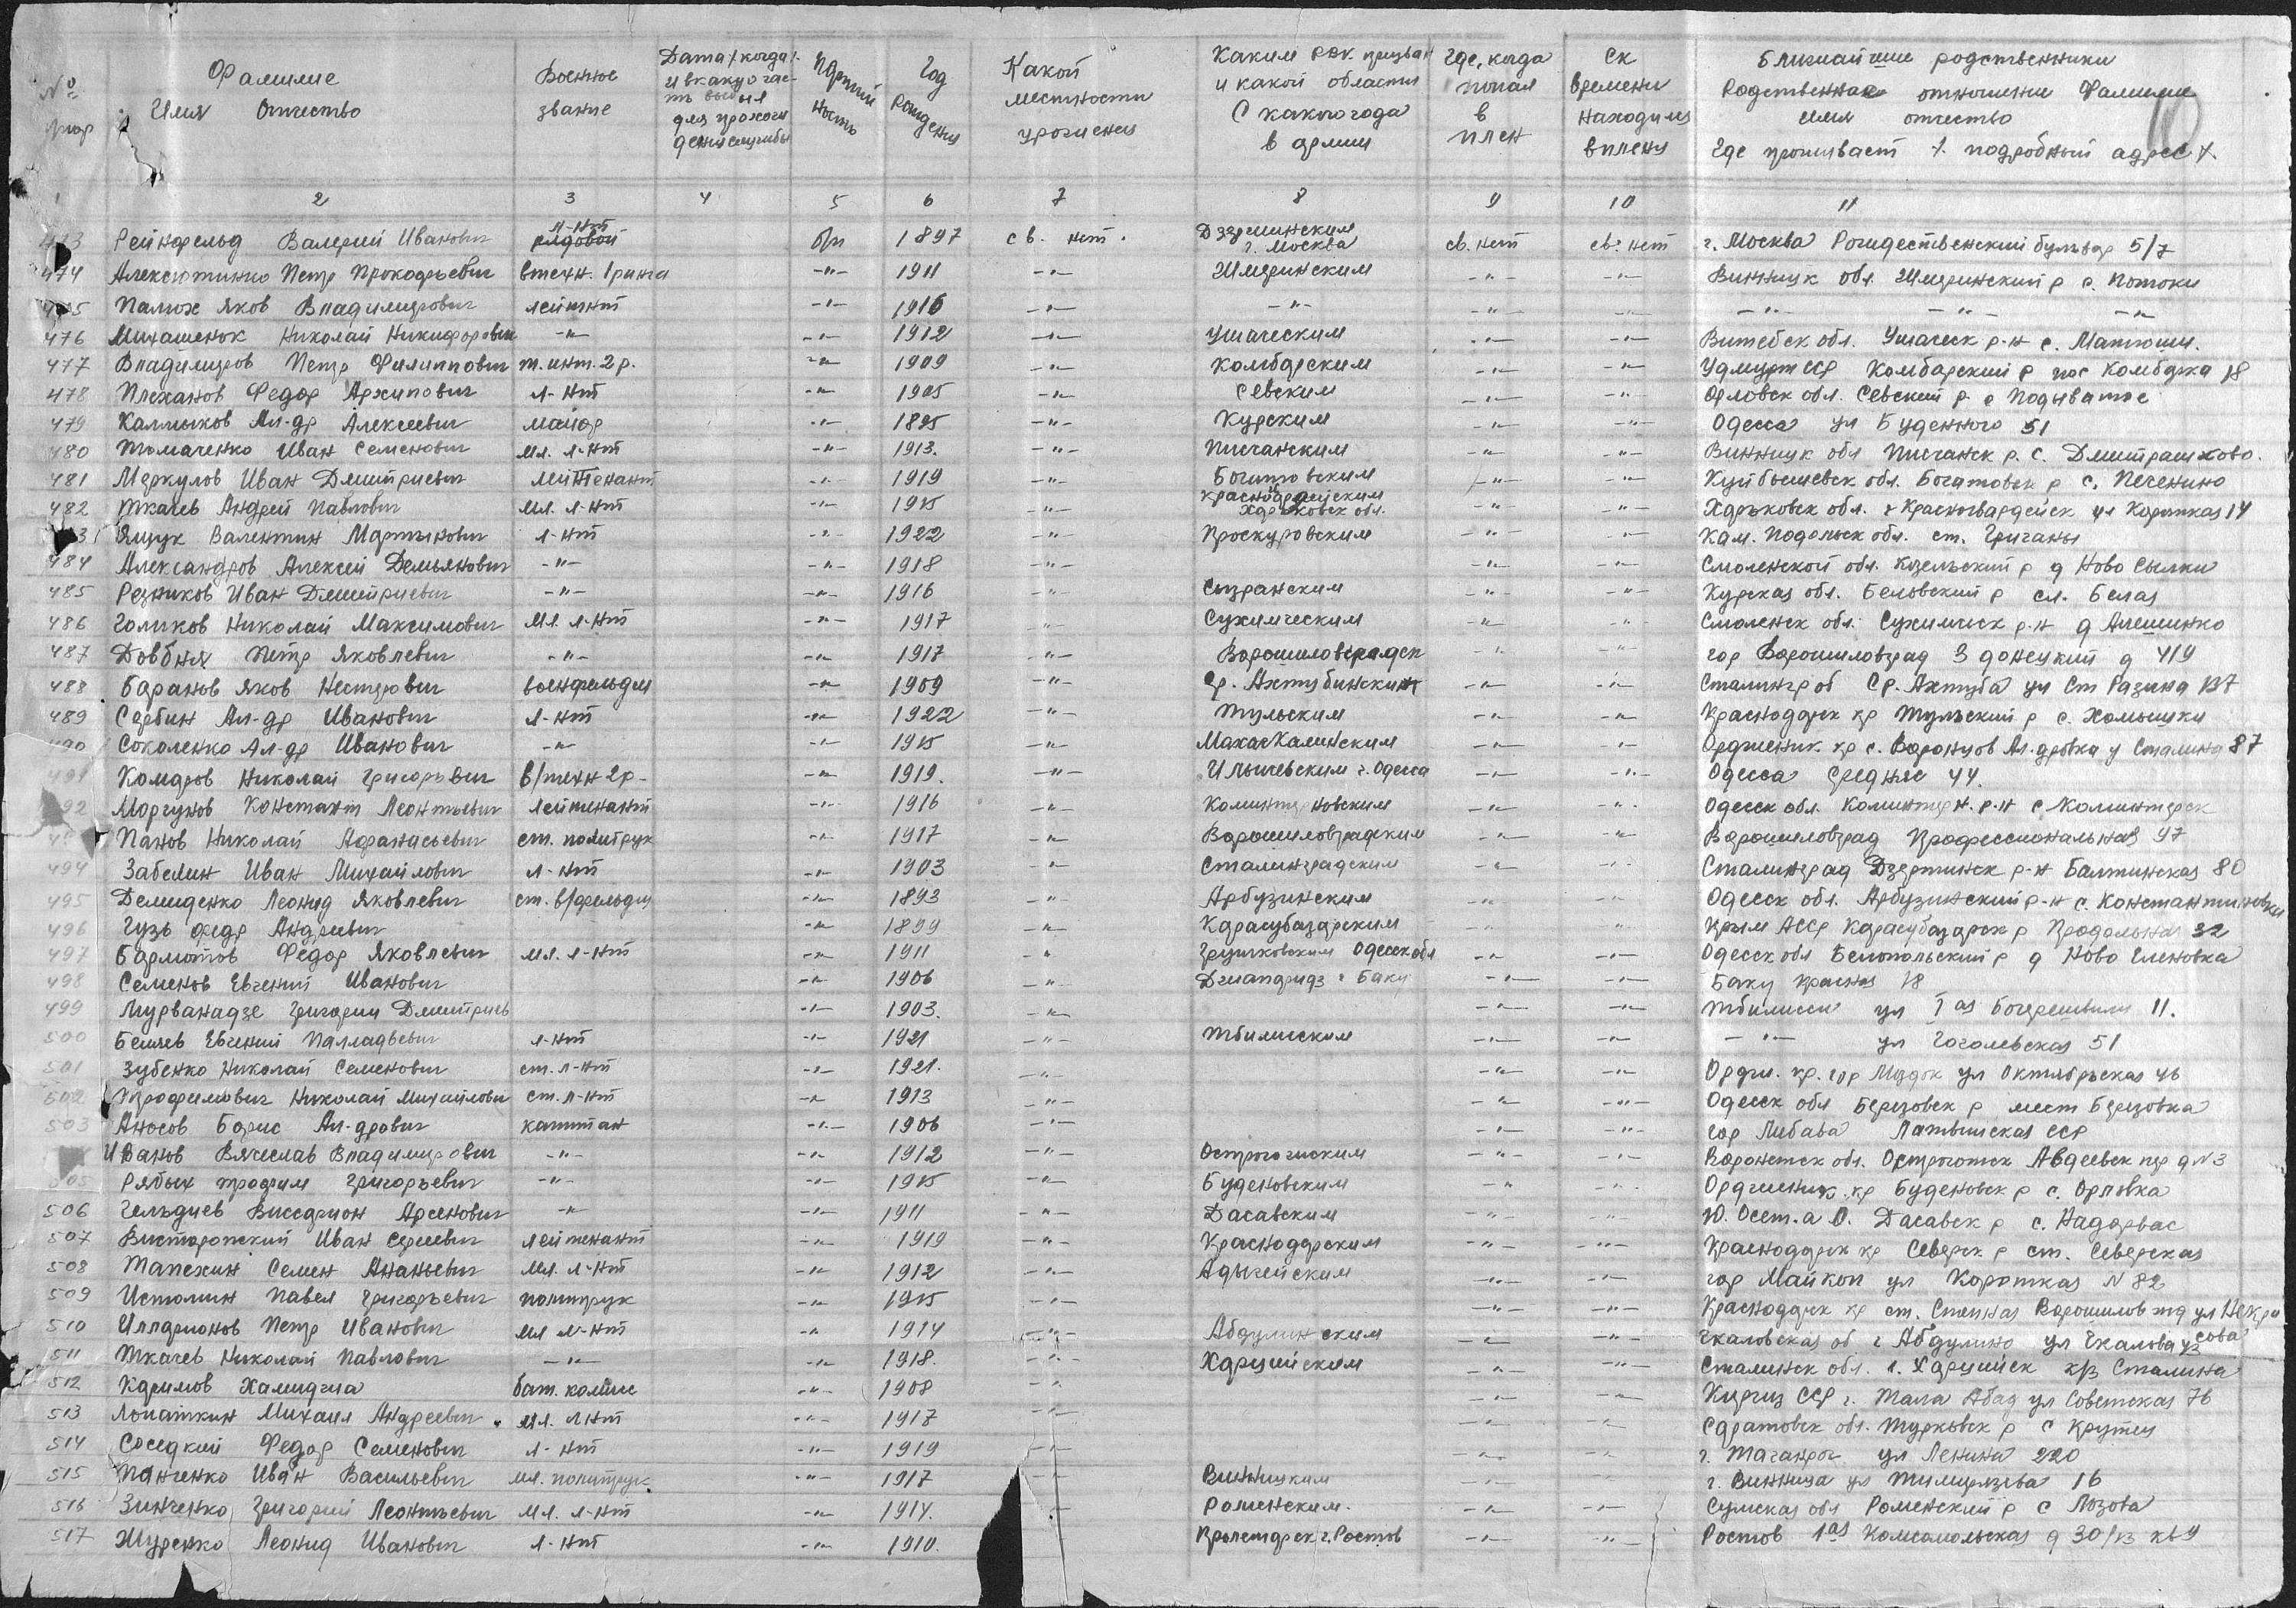 № пор
Фамилие Имя Отчество
Военное звание
Дата/когда/ и в какую часть выбыл для прохождения службы
Партийность
Год рождения
Какой местности уроженец
Каким РВК призван и какой области С какого года в армии
Где, когда попал в плен
Ск времени находился в плену
Ближайшие родственники Родственное отношение Фамилие имя отчество Где проживает /подробный адрес/
10
1 2 3 4 5 6 7 8 9 10 11
473 Рейнфельд Валерий Иванович рядовой л-нт б/п 1897 св. нет. Дзержинским г. Москва св. нет св. нет г. Москва Рождественский бульвар 5/7
474 Алексютинко Петр Прокофьевич втехн. 1 ранга -"- 1911 -"- Жмеринским -"- -"- Винницк обл. Жмеринский р с. Потоки
475 Палюх Яков Владимирович лейтнт -"- 1916 -"- -"- -"- -"- -"- -"- -"-
476 Михашенок Николай Никифорович -"- -"- 1912 -"- Ушаческим -"- -"- Витебск обл. Ушачск р-н с. Матюши.
477 Владимиров Петр Филиппович т. инт. 2 р. -"- 1909 -"- Камбарским -"- -"- Удмурт ССР Камбарский р пос Камбарка 18
478 Плеханов Федор Архипович л-нт -"- 1905 -"- Севским -"- -"- Орловск обл. Севский р. с Подывотье
479 Калмыков Ал-др Алексеевич майор -"- 1895 -"- Курским -"- -"- Одесса ул Буденного 51
480 Толмаченко Иван Семенович мл. л-нт -"- 1913. -"- Писчанским -"- -"- Винницк обл Писчанск р. с. Дмитрашково.
481 Меркулов Иван Дмитриевич лейтенант -"- 1919 -"- Богатовским -"- -"- Куйбышевск обл. Богатовск р с. Печенино
482 Ткачев Андрей Павлович мл. л-нт -"- 1915 -"- Красноармейским Харьковск обл. -"- -"- Харьковск обл. г Красногвардейск ул Короткая 14
483 Ящук Валентин Мартынович л-нт -"- 1922 -"- Проскуровским -"- -"- Кам. Подольск обл. ст. Гречаны
484 Александров Алексей Демьянович -"- -"- 1918 -"- -"- -"- Смоленской обл. Козельский р д Ново Сылки
485 Резников Иван Дмитриевич -"- -"- 1916 -"- Сызранским -"- -"- Курская обл. Беловский р сл. Белая
486 Голиков Николай Максимович мл. л-нт -"- 1917 -"- Сухиническим -"- -"- Смоленск обл. Сухиничск р-н д Алешинко
487 Довбня Петр Яковлевич -"- -"- 1917 -"- Ворошиловградск -"- -"- гор Ворошиловград 3 донецкий д 419
488 Баранов Яков Нестерович военфельдш -"- 1909 -"- Ср. Ахтубинским -"- -"- Сталингр об Ср. Ахтуба ул Ст Разина 137
489 Сербин Ал-др Иванович л-нт -"- 1922 -"- Тульским -"- -"- Краснодарск кр Тульский р с. Хамышки
490 Соколенко Ал-др Иванович -"- -"- 1915 -"- Махачкалинским -"- -"- Орджоник. кр с. Воронцов Ал-дровка у Сталина 87
491 Комаров Николай Григорьевич в/техн 2р- -"- 1919. -"- Ильичевским г. Одесса -"- -"- Одесса Средняя 44.
492 Моргунов Констант Леонтьевич лейтенант -"- 1916 -"- Коминтерновским -"- -"- Одесск обл. Коминтерн. р-н с Коминтерск
493 Панов Николай Афанасьевич ст. политрук -"- 1917 -"- Ворошиловградским -"- -"- Ворошиловград Профессиональная 47
494 Забелин Иван Михайлович л-нт -"- 1903 -"- Сталинградским -"- -"- Сталинград Дзержинск р-н Балтинская 80
495 Демиденко Леонид Яковлевич ст. в/фельдш -"- 1893 -"- Арбузинским -"- -"- Одесск обл. Арбузинский р-н с. Константиновка
496 Гузь Федр Андреевич -"- 1899 -"- Карасубазарским -"- -"- Крым АССР Карасубазарск р Продольная 32
497 Барматов Федор Яковлевич мл. л-нт -"- 1911 -"- Грушковским Одесск обл -"- -"- Одесск обл Белопольский р д Ново Еленовка
498 Семенов Евгений Иванович -"- 1906 -"- Джапаридз г Баку -"- -"- Баку Красная 18
499 Мурванадзе Григорий Дмитриев -"- 1903. -"- -"- -"- Тбилисси ул 1ая 11.
500 Беляев Евгений Палладьевич л-нт -"- 1921 -"- Тбилисским -"- -"- -"- ул Гоголевская 51
501 Зубенко Николай Семенович ст. л-нт -"- 1921. -"- -"- -"- Ордж. кр. гор Моздок ул Октябрьская 46
502 Трофимович Николай Михайлович ст. л-нт -"- 1913 -"- -"- -"- Одесск обл Березовск р мест Березовка
503 Аносов Борис Ал-дрович капитан -"- 1906 -"- -"- -"- гор Либава Латвийская ССР
Иванов Вячеслав Владимирович -"- -"- 1912 -"- Острогожским -"- -"- Воронежск обл. Острогожск Авдеевск пер д № 3
505 Рябых Трофим Григорьевич -"- -"- 1915 -"- Буденовским -"- -"- Орджоник. кр Буденовск р с. Орловка
506 Гельдиев Виссарион Арсенович -"- -"- 1911 -"- Дасавским -"- -"- Ю. Осет. а О. Дасавск р с. Надарвас
507 Висторопский Иван Сергеевич лейтенант -"- 1919 -"- Краснодарским -"- -"- Краснодарск кр Северск р ст. Северская
508 Тапехин Семен Ананьевич мл. л-нт -"- 1912 -"- Адыгейским -"- -"- гор Майкоп ул Короткая N 82
509 Истомин Павел Григорьевич политрук -"- 1915 -"- -"- -"- Краснодарск кр ст. Степная Ворошилов ул Некрасова
510 Илларионов Петр Иванович мл л-нт -"- 1914 -"- Абдулинским -"- -"- Чкаловская об г Абдулино ул Чкалова 43
511 Ткачев Николай Павлович -"- -"- 1918. -"- Харцийским -"- -"- Сталинск обл. г. Харцийск к/з Сталина
512 Каримов Хамиджа бат. комис -"- 1908 -"- -"- -"- Киргиз ССР г. Жала Абад ул Советская 76
513 Лопаткин Михаил Андреевич. мл. лнт -"- 1917 -"- -"- -"- Саратовск обл. Турковск р с Крутец
514 Соседкий Федор Семенович л-нт -"- 1919 -"- -"- -"- г. Таганрог ул Ленина 220
515 Панченко Иван Васильевич мл. политрук -"- 1917 -"- Винницким -"- -"- г. Винница ул Тимирязева 16
516 Зинченко Григорий Леонтьевич мл. л-нт -"- 1914. -"- Роменским. -"- -"- Сумская обл Роменский р с Лозова
517 Журенко Леонид Иванович л-нт -"- 1910. Пролетарск г. Ростов -"- -"- Ростов 1ая Комсомольская д 30/13 кв 9